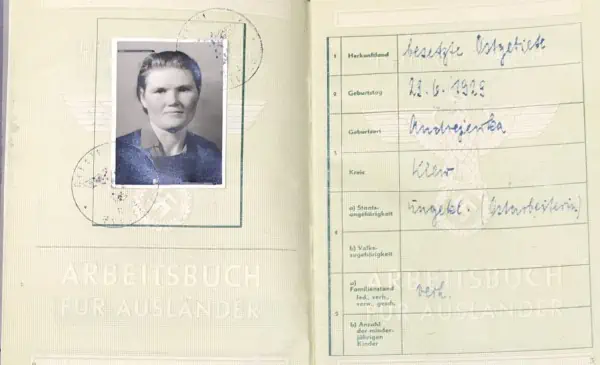 ARBEITSBUCH
FÜR AUSLÄNDER
1 Herkunftland besetzte Ostgebiete
2 Geburtstag
Geburtsort Andrejewka
3
Kreis Kiew
a) Staats-
angehörigkeit ungekl. (Ostarbeiterin)
4
b) Volks-
zugehörigkeit
a)
Familienstand verh.
led., verh.,
verw., gesch.
5
b) Anzahl
der minder-
jährigen
Kinder
ARBEITSBUCH
FÜR AUSLÄNDER